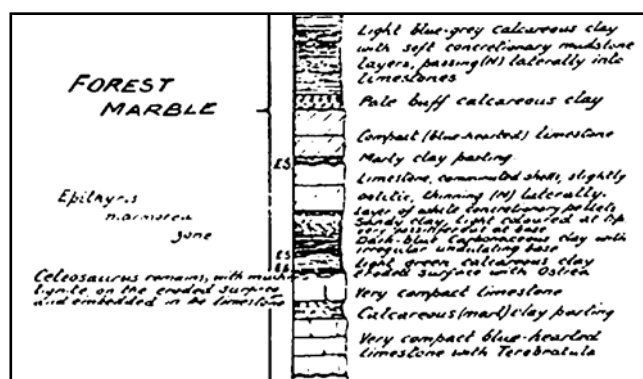 FOREST
MARBLE
Epithyris
marmorea
zone
Ceteosaurus remains, with much
lignite, on the eroded surface
and embedded in the limestone
ES
ES
Light blue-grey calcareous clay
with soft concretionary mudstone
layers, passing (N) laterally into
limestones
Pale buff calcareous clay
Compact (blue-hearted) limestone
Marly clay parting.
Limestone, comminuted shells, slightly
oolitic, thinning (N) laterally.
Layer of white concretionary pellets
Sandy clay, light coloured at top
very fossiliferous at base
Dark-blue Carbonaceous clay with
irregular undulating base
light green calcareous clay
eroded surface with Ostrea
Very compact limestone
Calcareous (marl) clay parting
Very compact blue-hearted
limestone with Terebratula